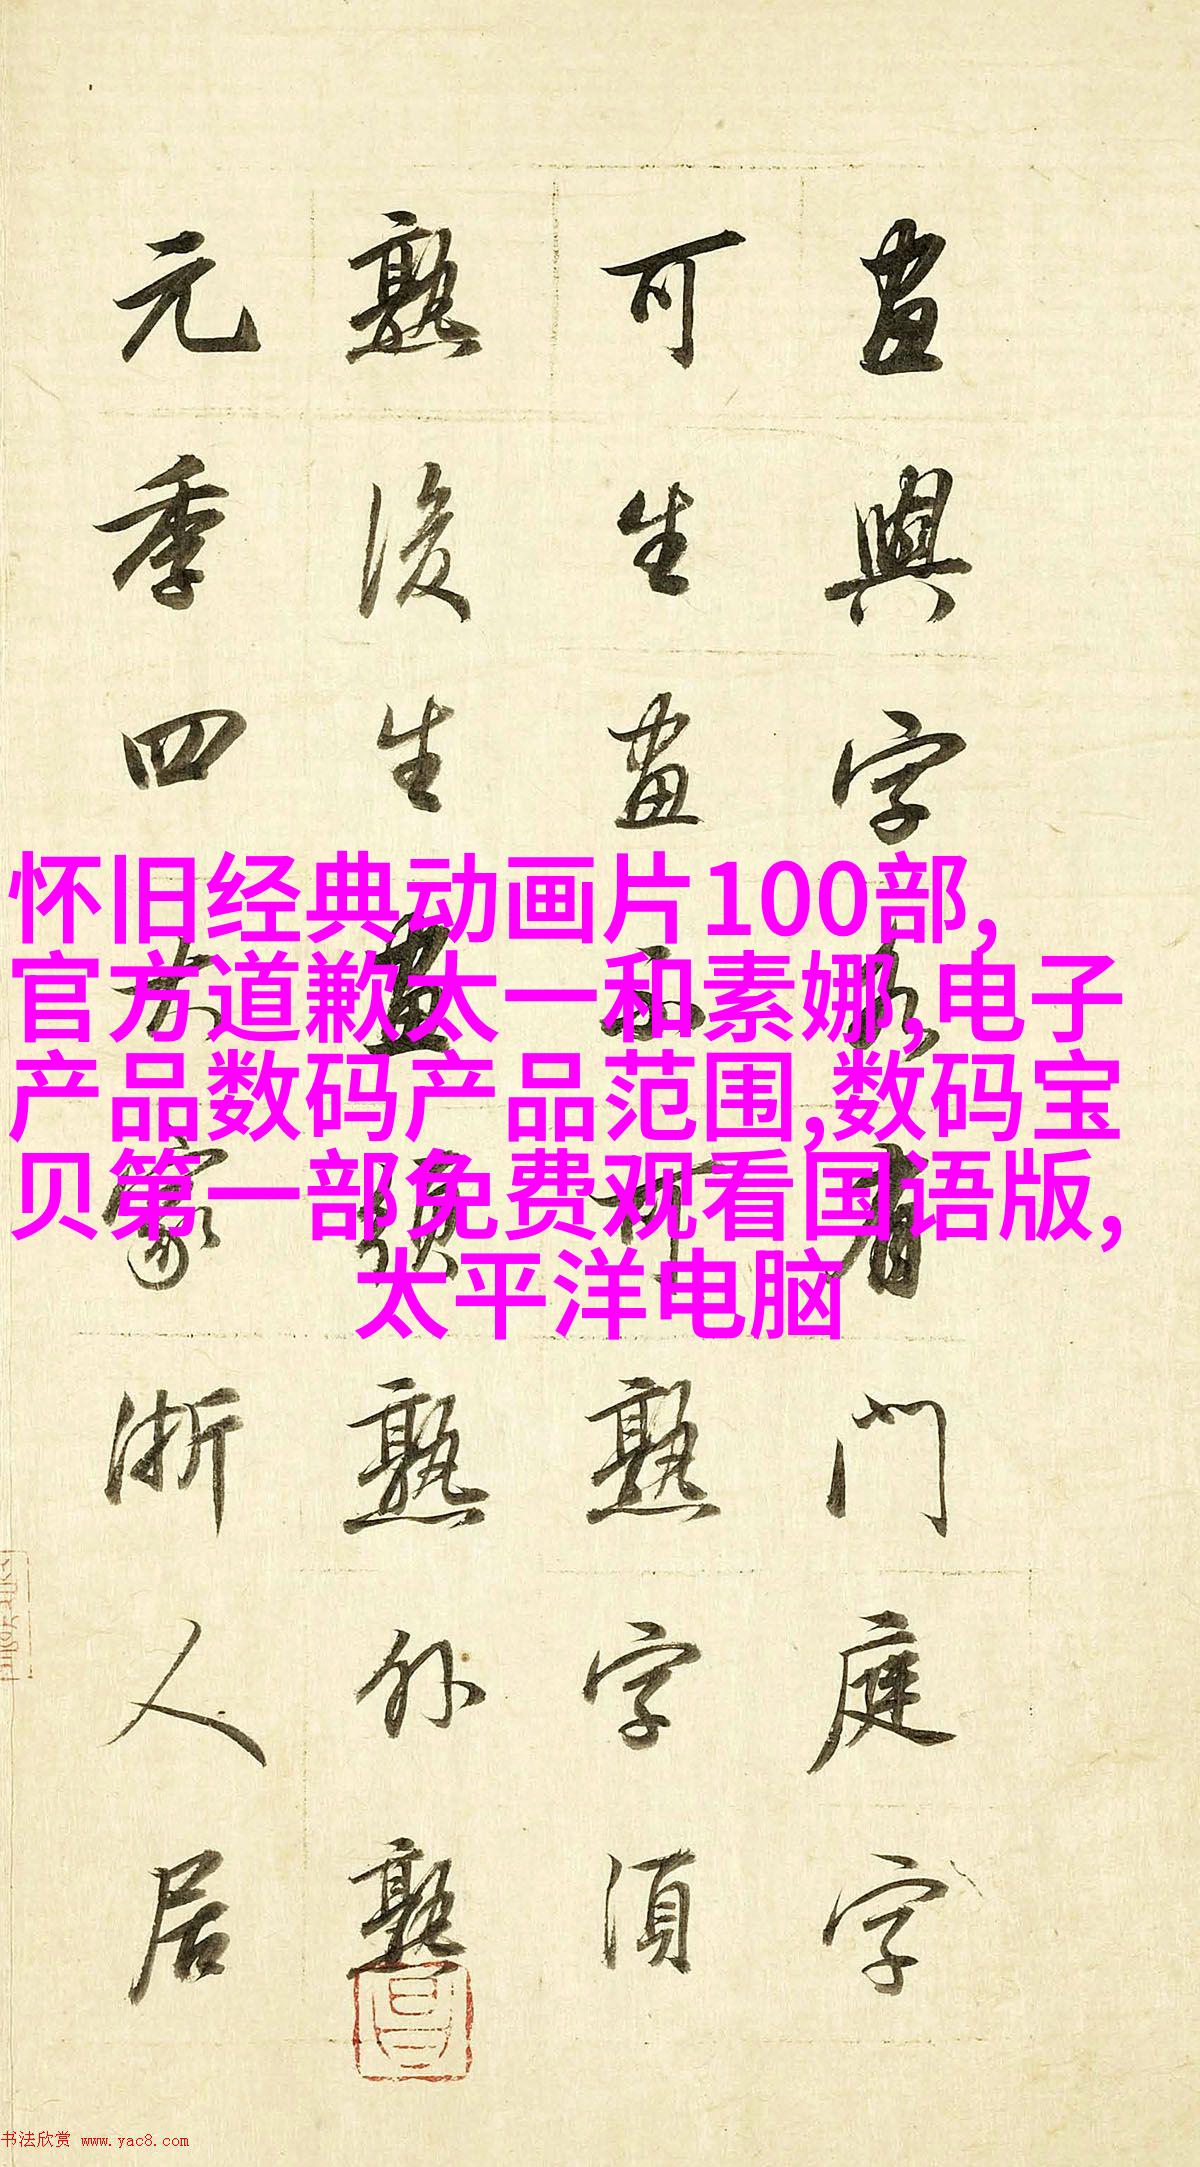 畫與字各有門庭字
可生畫不可熟字須
熟後生畫須熟外熟
元季四大家浙人居
怀旧经典动画片100部,
官方道歉太一和素娜,电子
产品数码产品范围,数码宝
贝第一部免费观看国语版,
太平洋电脑
书法欣赏 www.yac8.com